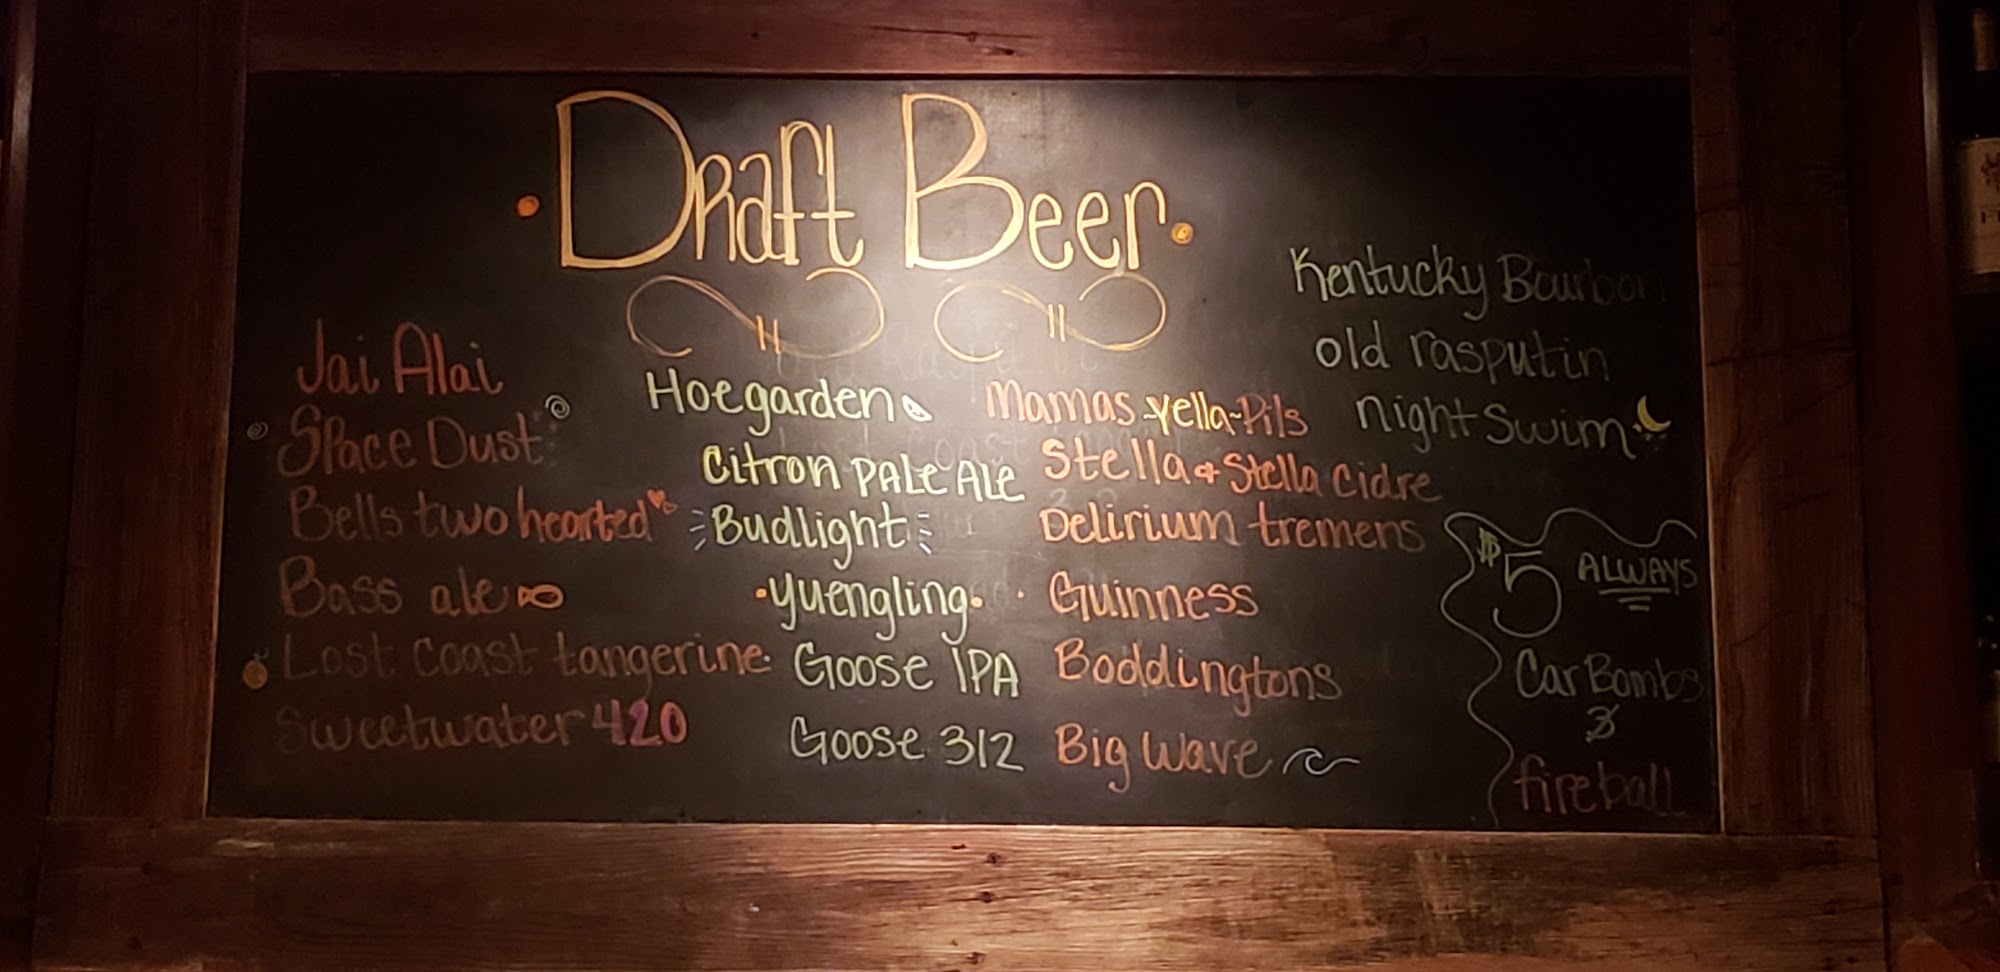 Draft Beer
Jai Alai
Space Dust
Bells two hearted
Bass ale
Lost Coast tangerine
Sweetwater 420
Hoegarden
Citron PALE ALE
Budlight
Yuengling
Goose IPA
Goose 312
Mamas yella-Pils
Stella & Stella Cidre
Delirium tremens
Guinness
Boddingtons
Big Wave
Kentucky Bourbon
old rasputin
Night Swim
$5 ALWAYS
Car Bombs
&
fireball